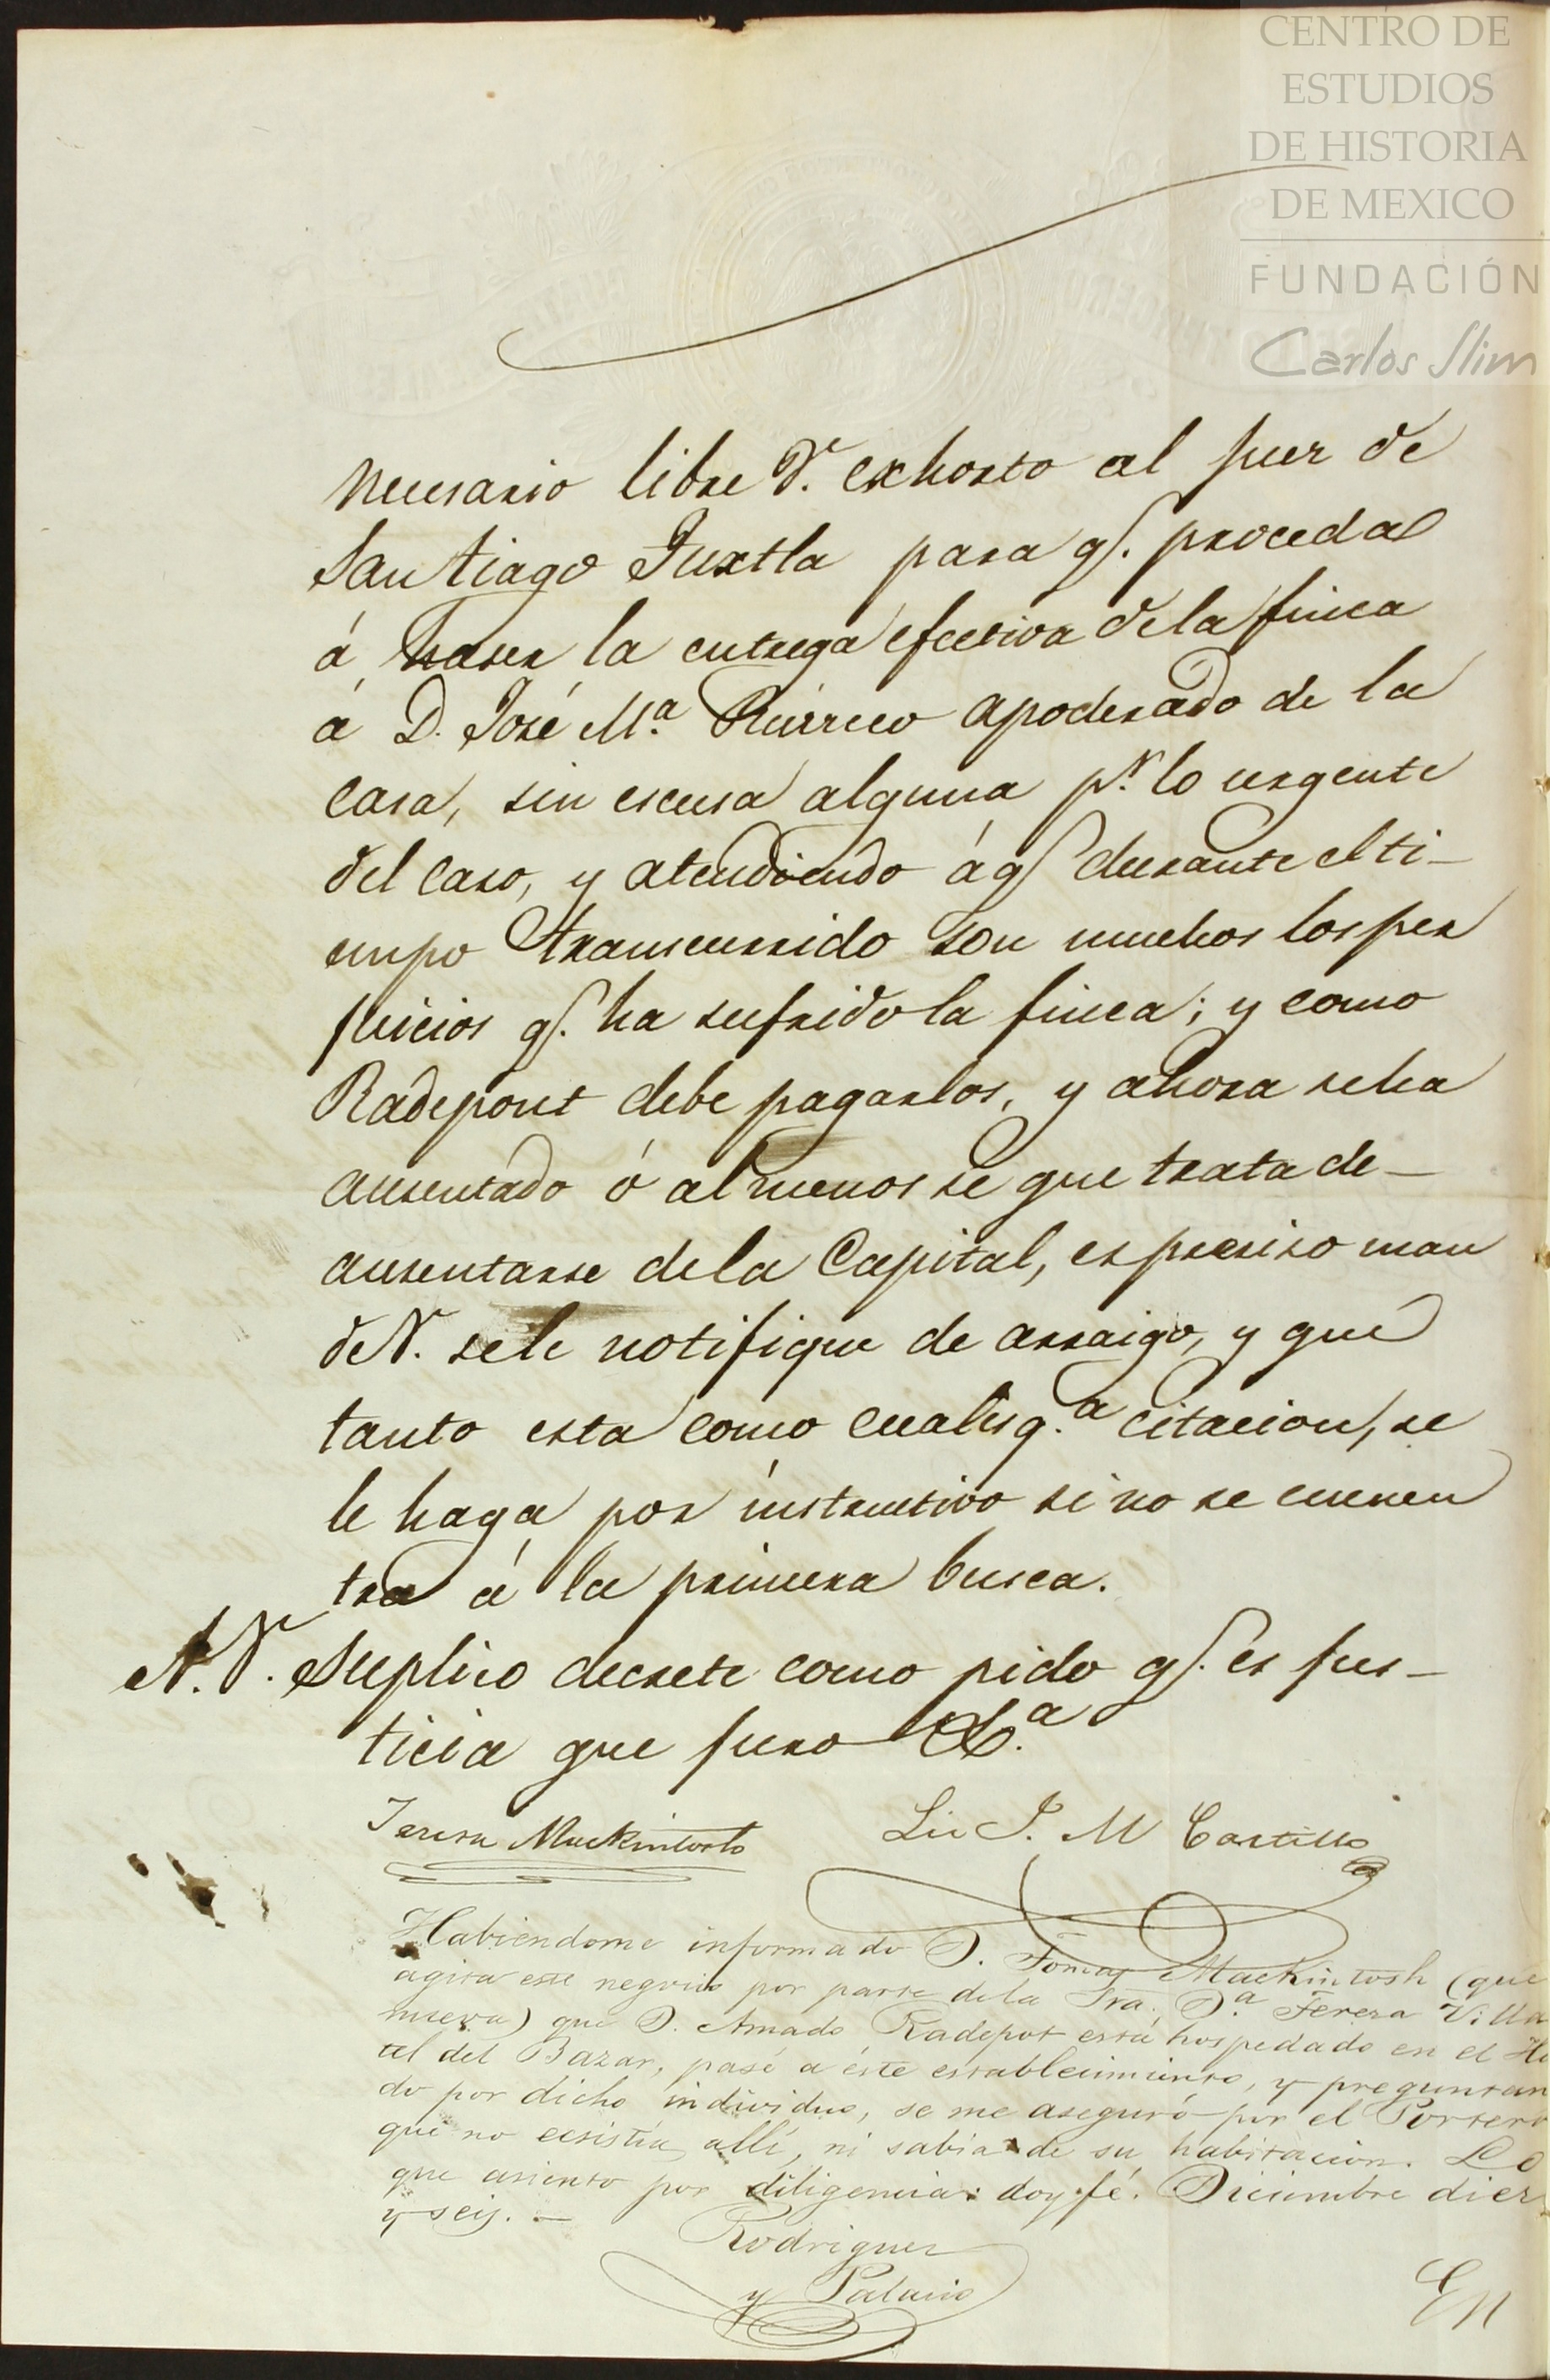 CENTRO DE
ESTUDIOS
DE HISTORIA
DE MEXICO
FUNDACIÓN
Carlos Slim
necesario libre V. exhorto al juez de
Santiago Tuxtla para q. proceda
á haser la entrega efectiva de la finca
á D. José M.ª apoderado de la
casa, sin escusa alguna p.r lo urgente
del caso, y atendiendo á q durante el ti-
empo transcurrido son muchos los per
juicios q. ha sufrido la finca; y como
Radepont debe pagarlos, y ahora se ha
ausentado ó al menos se que trata de-
ausentarse de la Capital, es presiso man
de V. se le notifique de arraigo, y que
tanto esta como cualesq.a citacion, se
le haga por instructivo si no se encuen
tra á la primera busca.
A. V. Suplico decrete como pido q. es jus-
ticia que juro &.a
Teresa Mackintosh
Lic J. M Castillo
Habiendome informado D. Tomas Mackintosh (que
agita este negocio por parte de la Sra. D.a Teresa Villa
nueva) que D. Amado Radepot está hospedado en el Ho
tel del Bazar, pasé a éste establecimiento, y preguntan
do por dicho individuo, se me aseguró por el Portero
que no ecsistia allí, ni sabia de su habitacion. Lo
que asiento por diligencia: doy fé. Diciembre diez
y seis. -
Rodriguez
y Palacio
En